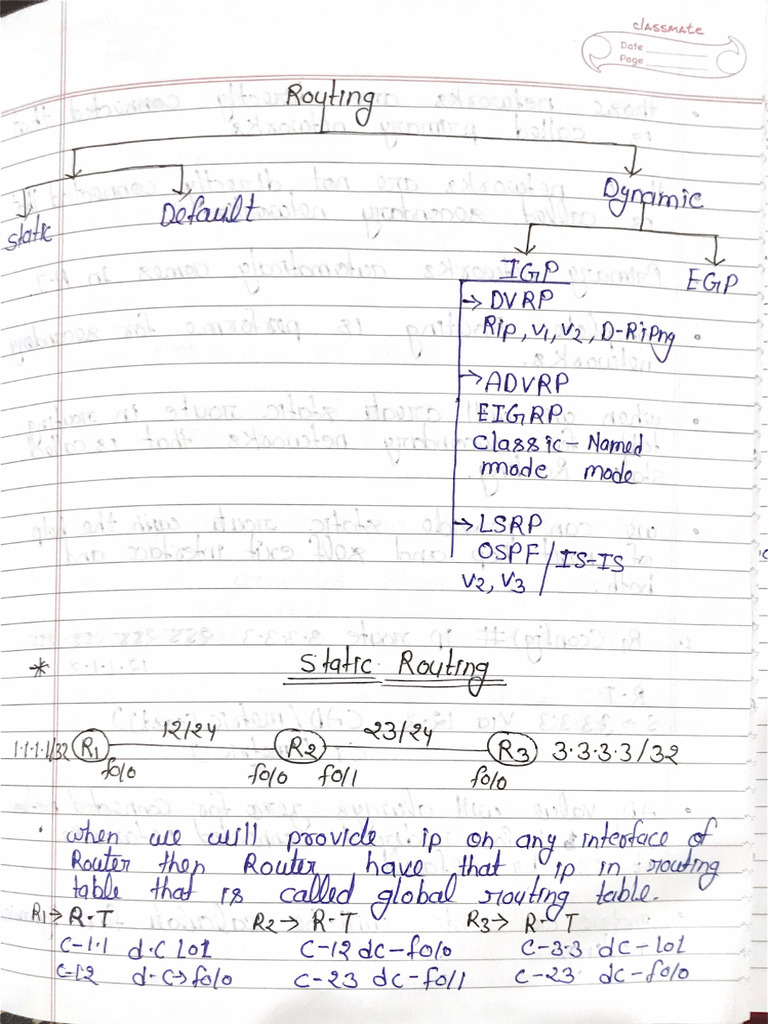 classmate
Date
Page
Routing
Static
Default
Dynamic
IGP
EGP
→ DVRP
Rip, v1, v2, D-RiPng
→ ADVRP
EIGRP
Classic - Named
mode mode
→ LSRP
OSPF / IS-IS
v2, v3
* Static Routing
1.1.1.1/32 R1 12/24 R2 23/24 R3 3.3.3.3/32
fo/o fo/o fo/1 fo/o
• when we will provide ip on any interface of
Router then Router have that ip in routing
table that is called global routing table.
R1→ R.T R2→ R.T R3→ R.T
C-1.1 d.C lo1 C-12 dc-fo/o C-3.3 dc-lo1
C-12 d.C→fo/o C-23 dc-fo/1 C-23 dc-fo/o